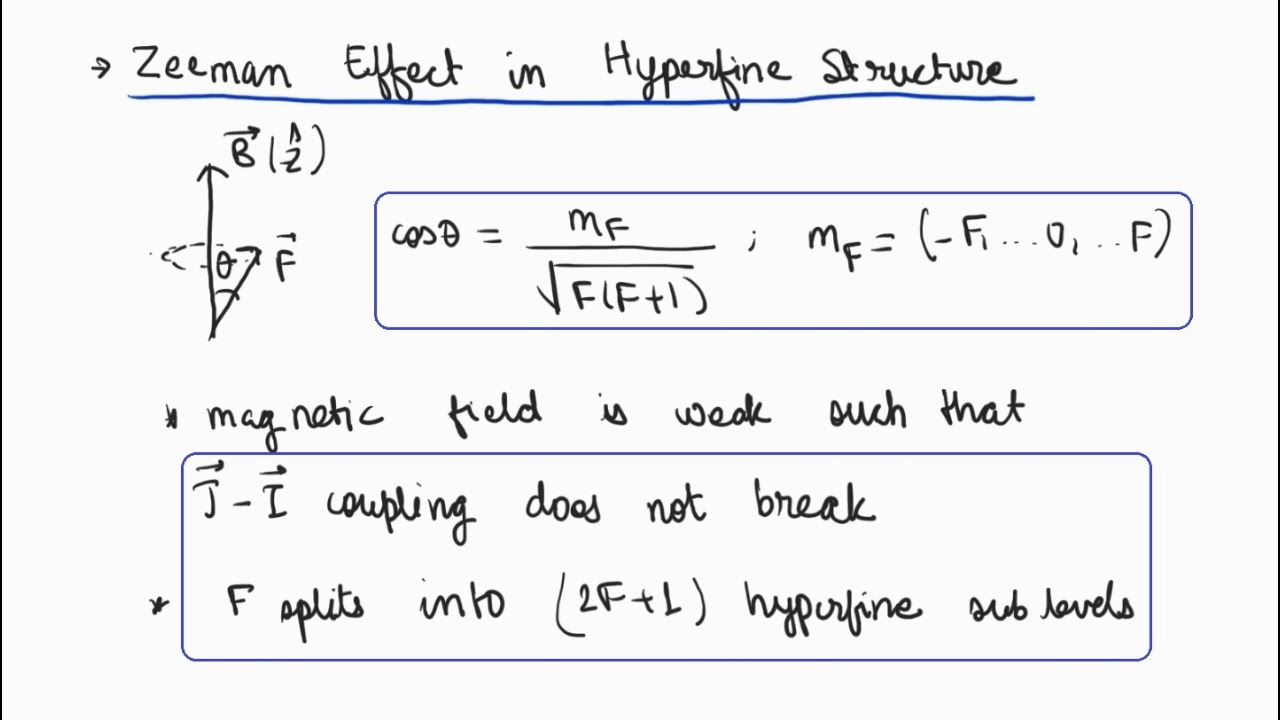 → Zeeman Effect in Hyperfine Structure
B⃗ (ẑ)
cosθ = m_F / √F(F+1) ; m_F = (-F, ...0, ..F)
θ F⃗
* magnetic field is weak such that
J⃗ - I⃗ coupling does not break
* F splits into (2F+1) hyperfine sub levels